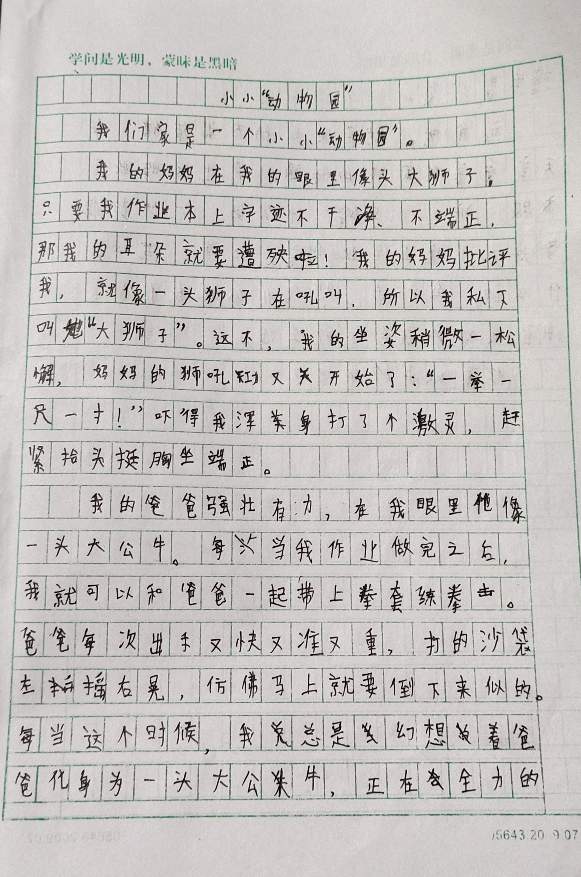 学问是光明，蒙昧是黑暗
小小“动物园”
我们家是一个小小“动物园”。
我的妈妈在我的眼里像头大狮子。
只要我作业本上字迹不干净、不端正，
那我的耳朵就要遭殃啦！我的妈妈批评
我，就像一头狮子在吼叫，所以我私下
叫她“大狮子”。这不，我的坐姿稍微一松
懈，妈妈的狮吼功又开始了：“一拳一
尺一寸！”吓得我浑身打了个激灵，赶
紧抬头挺胸坐端正。
我的爸爸强壮有力，在我眼里他像
一头大公牛。每当我作业做完之后，
我就可以和爸爸一起带上拳套练拳击。
爸爸每次出手又快又准又重，打的沙袋
左摇右晃，仿佛马上就要倒下来似的。
每当这个时候，我总是幻想着爸
爸化身为一头大公牛，正在全力的
05643.20 9.07